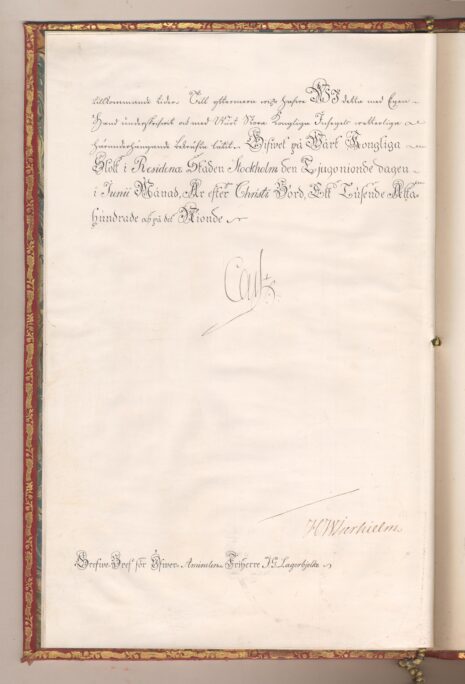 tillkommande tider. Till yttermera wiszo hafwe WJ detta med Egen
Hand underskrifwit och med Wårt Stora Kongliga Insegel wetterligen
härunderhängande bekräfta låtit. Gifwet på Wårt Kongliga
Slott i Residence Staden Stockholm den Tjugonionde dagen
i Junii Månad, År efter Christi Börd, Ett Tusende Åtta
hundrade och på det Nionde
Carl
Grefwe-Bref för Öfwer-Amiralen Friherre J G Lagerbjelke